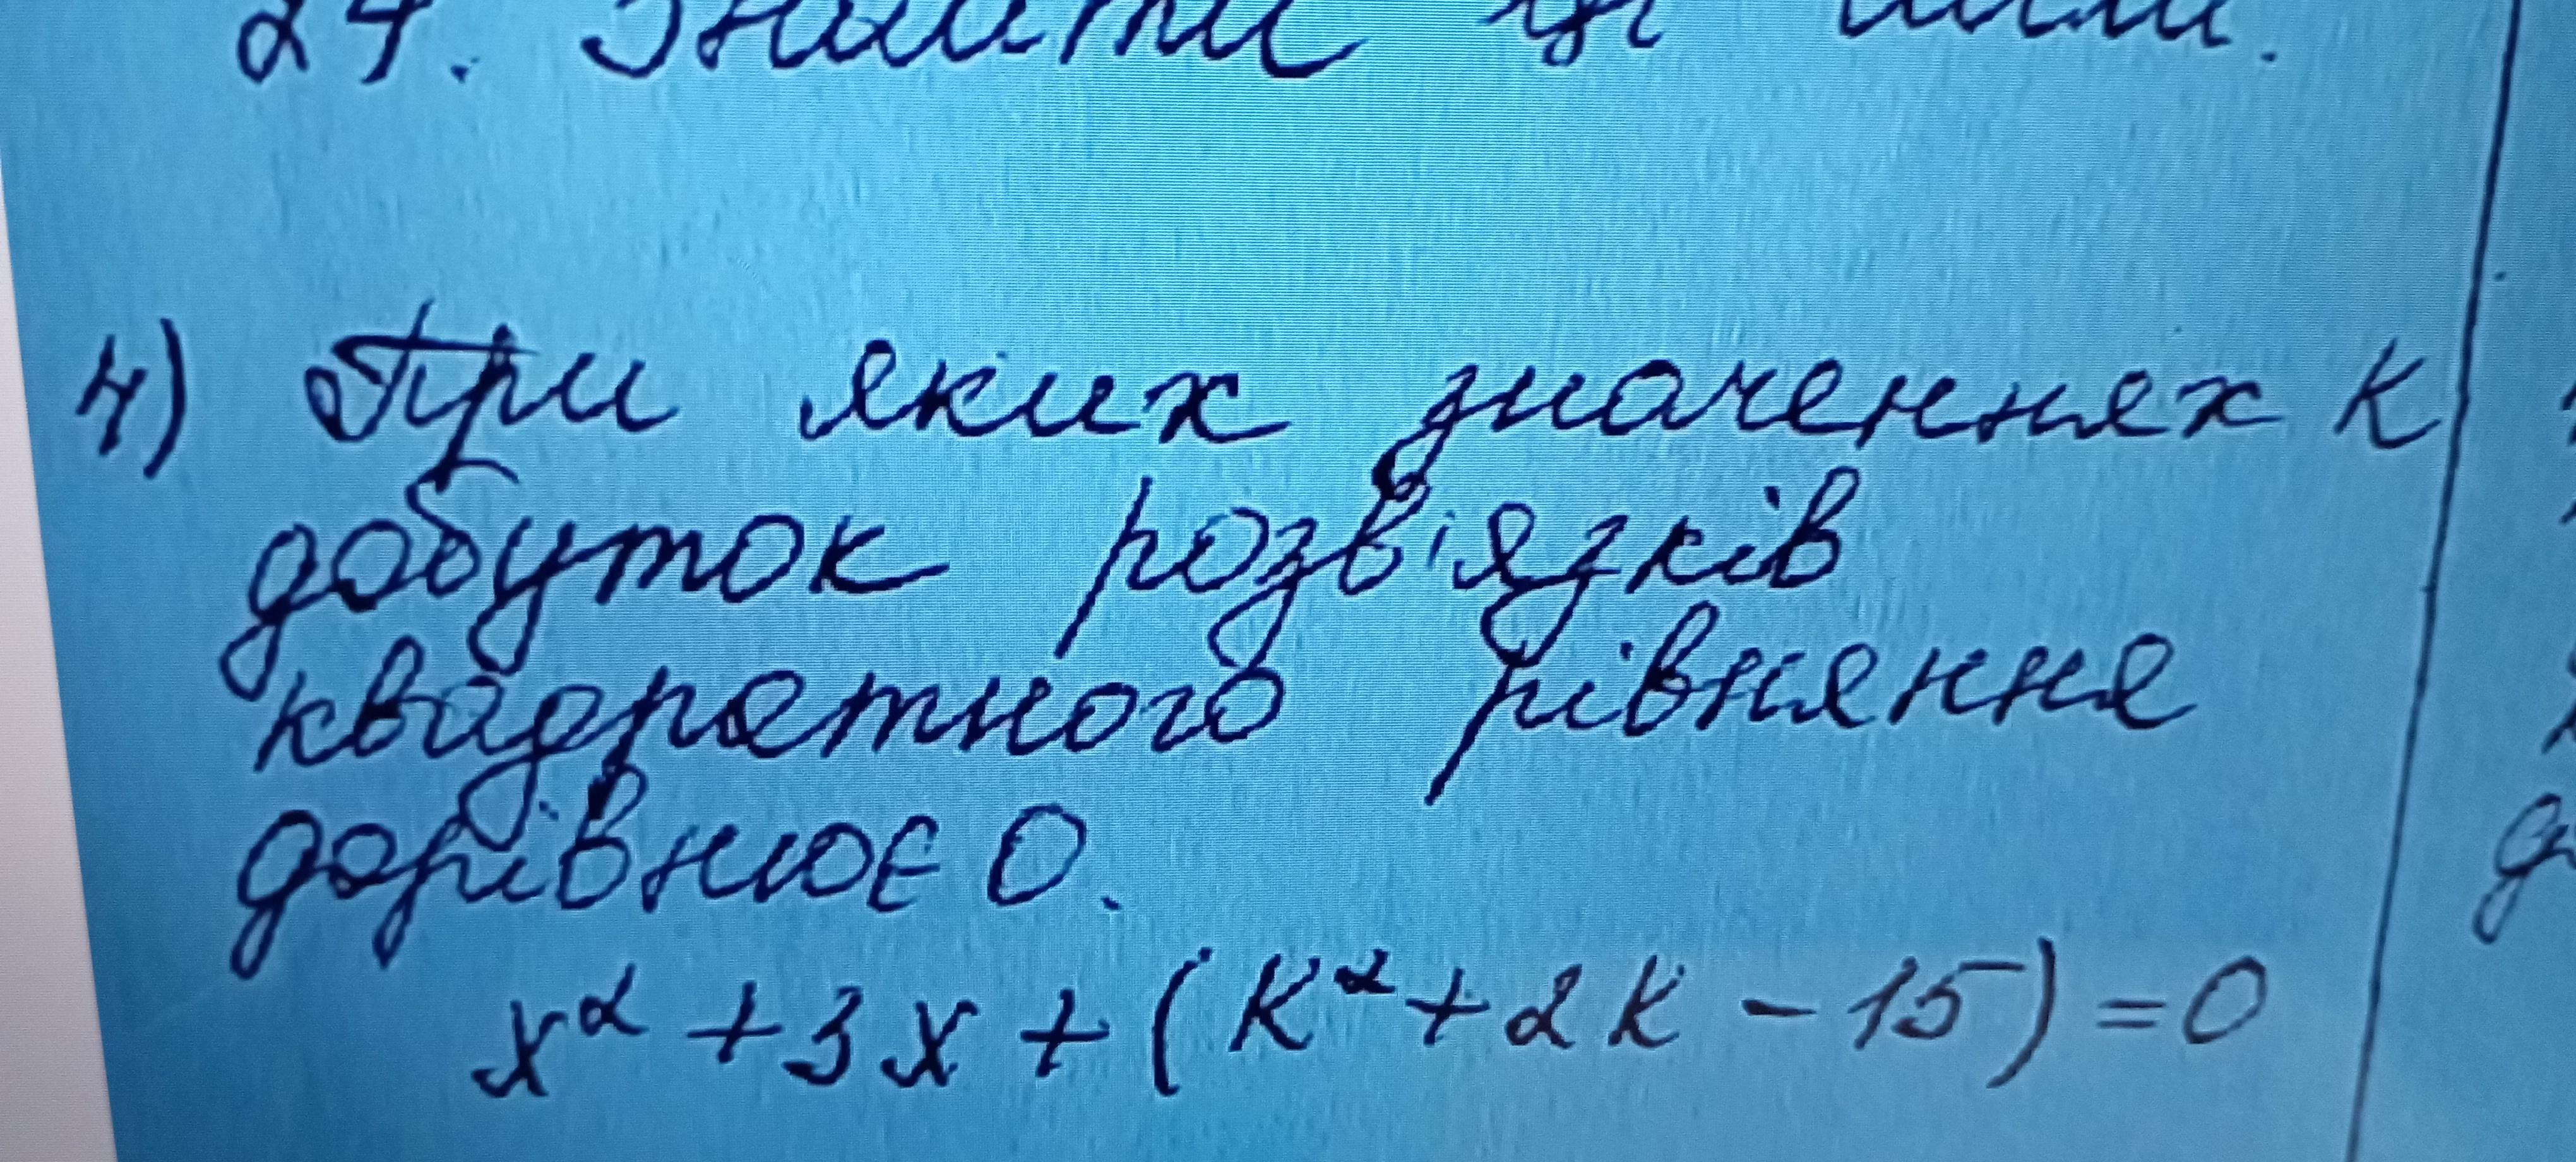 24. Знайти ці числа.
4) При яких значеннях к
добуток розв'язків
квадратного рівняння
дорівнює 0.
x² + 3x + (к² + 2к - 15) = 0